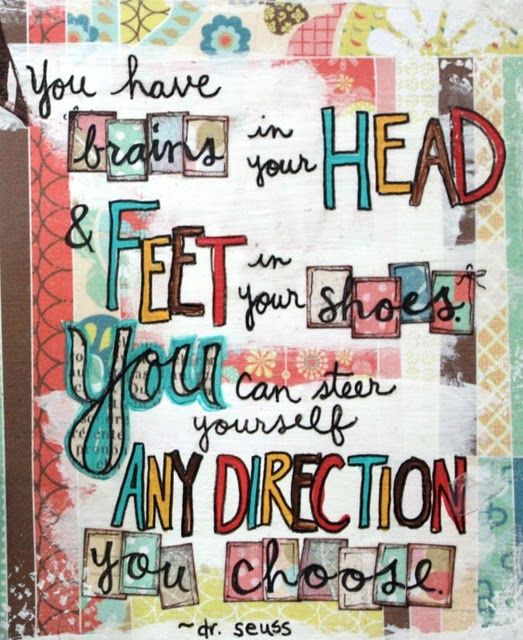 You have
brains in your HEAD
& FEET in your shoes.
You can steer
yourself
ANY DIRECTION
you choose.
~dr. seuss